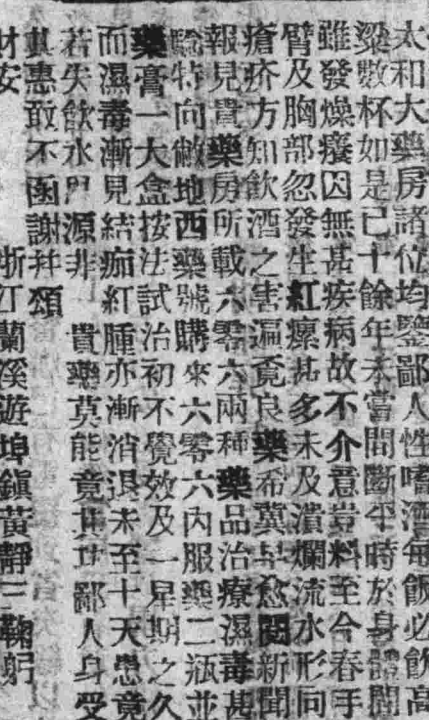 太和大藥房諸位均鑒鄙人性嗜酒每飯必飲高
粱數杯如是已十餘年未嘗間斷平時於身體間
雖發燥癢因無甚疾病故不介意豈料至今春手
臂及胸部忽發生紅瘰甚多未及潰爛流水形同
瘡疥方知飲酒之害遍覓良藥希冀早愈閱新聞
報見貴藥房所載六零六兩種藥品治療濕毒甚
驗特向敝地西藥號購來六零六內服藥二瓶並
藥膏一大盒按法試治初不覺效及一星期之久
而濕毒漸見結痂紅腫亦漸消退未至十天患竟
若失飲水思源非 貴藥莫能竟其功鄙人身受
其惠敢不函謝并頌
財安 浙江蘭溪遊埠鎮黃靜三鞠躬